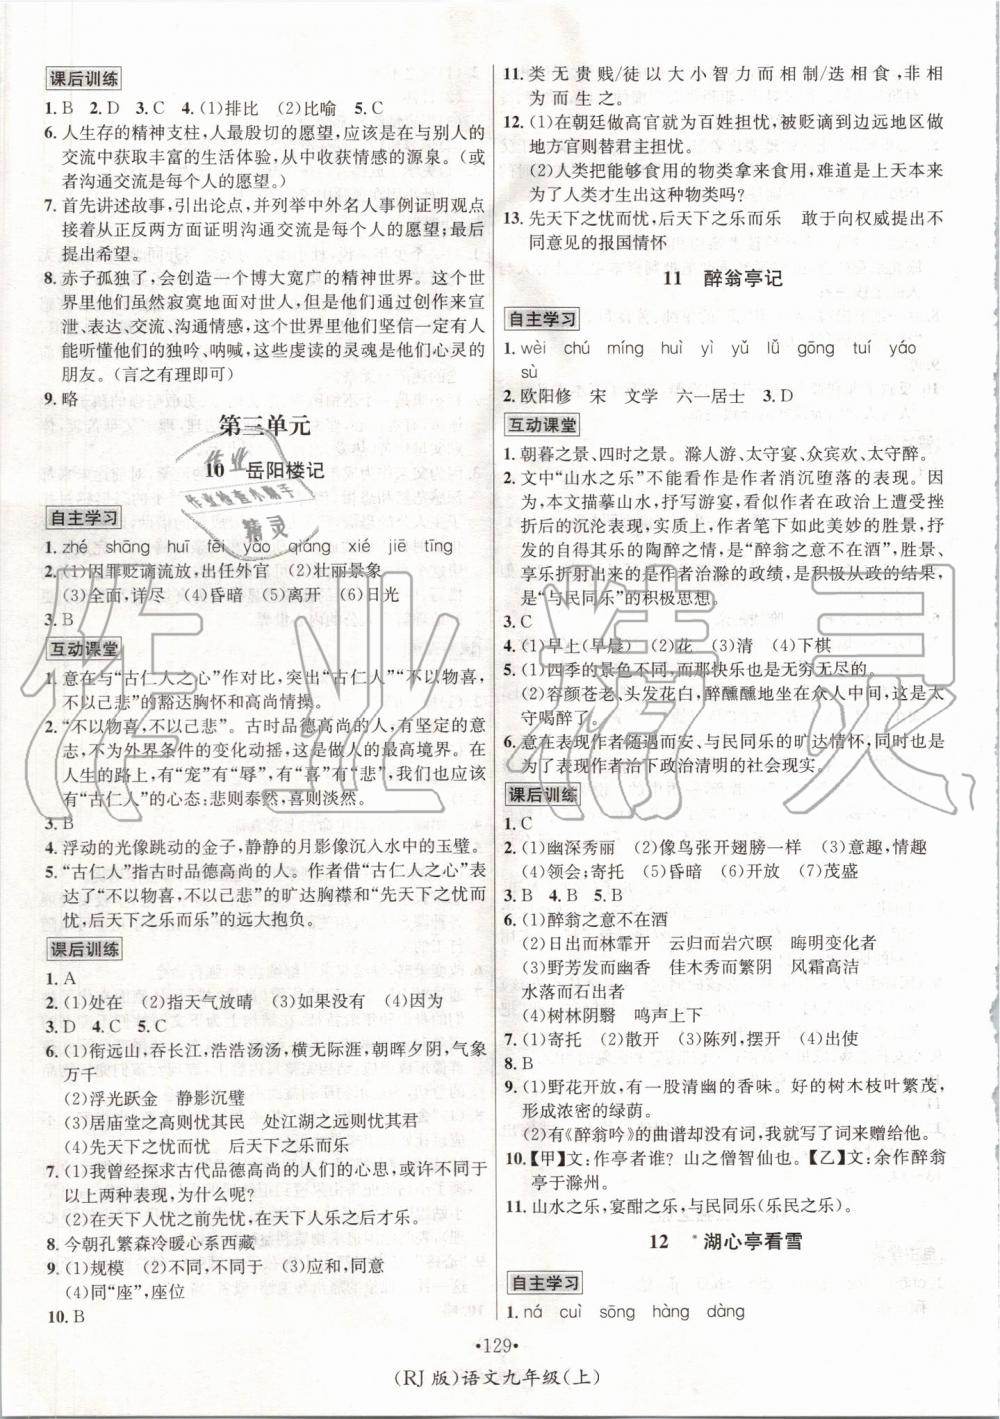 课后训练
1. B 2. D 3. C 4. (1)排比 (2)比喻 5. C
6. 人生存的精神支柱,人最殷切的愿望,应该是在与别人的
交流中获取丰富的生活体验,从中收获情感的源泉。(或
者沟通交流是每个人的愿望。)
7. 首先讲述故事,引出论点,并列举中外名人事例证明观点
接着从正反两方面证明沟通交流是每个人的愿望;最后
提出希望。
8. 赤子孤独了,会创造一个博大宽广的精神世界。这个世
界里他们虽然寂寞地面对世人,但他们通过创作来宣
泄、表达、交流、沟通情感,这个世界里他们坚信一定有人
会倾听他们的独吟、呐喊,这些虔读的灵魂是他们心灵的
朋友。(言之有理即可)
9. 略
第三单元
10 岳阳楼记
自主学习
1. zhé shāng huī fēi yào qiáng xié jiē tīng
2. (1)因罪贬谪流放,出任外官 (2)壮丽景象
(3)全面,详尽 (4)昏暗 (5)离开 (6)日光
3. B
互动课堂
1. 意在与“古仁人之心”作对比,突出“古仁人”“不以物喜,
不以己悲”的豁达胸怀和高尚情操。
2. “不以物喜,不以己悲”。古时品德高尚的人,有坚定的意
志,不为外界条件的变化动摇,这是做人的最高境界。在
人生的路上,有“宠”有“辱”,有“喜”有“悲”,我们也要
有“古仁人”的心态:悲则泰然,喜则淡然。
3. B
4. 浮动的光像跳动的金子,静静的月影像沉入水中的玉璧。
5. “古仁人”指古时品德高尚的人。作者借“古仁人之心”表
达了“不以物喜,不以己悲”的旷达胸襟和“先天下之忧而
忧,后天下之乐而乐”的远大抱负。
课后训练
1. A
2. (1)处在 (2)指天气放晴 (3)如果没有 (4)因为
3. D 4. C 5. C
6. (1)衔远山,吞长江,浩浩汤汤,横无际涯;朝晖夕阴,气象
万千
(2)浮光跃金 静影沉璧
(3)居庙堂之高则忧其民 处江湖之远则忧其君
(4)先天下之忧而忧 后天下之乐而乐
7. (1)我曾经探求古代品德高尚的人们的心思,或许不同于
以上两种表现,为什么呢?
(2)在天下人忧之前先忧,在天下人乐之后才乐。
8. 今朝孔繁森冷暖心系西藏
9. (1)规模 (2)不同,不同于 (3)应和,同意
(4)同“座”,座位
10. B
11. 类无贵贱/徒以大小智力而相制/迭相食,非相
为而生之。
12. (1)在朝廷做高官就为百姓担忧,被贬谪到边远地区做
地方官则替君主担忧。
(2)人类把能够食用的物类拿来食用,难道是上天本来
为了人类才生出这种物类吗?
13. 先天下之忧而忧,后天下之乐而乐 敢于向权威提出不
同意见的报国情怀
11 醉翁亭记
自主学习
1. wèi chú míng huì yì yǔ lǚ gōng tuí yáo
sù
2. 欧阳修 宋 文学 六一居士 3. D
互动课堂
1. 朝暮之景、四时之景。滁人游、太守宴、众宾欢、太守醉。
2. 文中“山水之乐”不能看作是作者消沉堕落的表现。因
为,本文描摹山水,抒写游宴,看似作者在政治上遭受挫
折后的沉沦表现,实质上,作者笔下如此美妙的胜景,抒
发的自得其乐的陶醉之情,是“醉翁之意不在酒”,胜景、
享乐折射出来的是作者治滁的政绩,是积极从政的结果,
是“与民同乐”的积极思想。
3. C
4. (1)早上(早晨) (2)花 (3)清 (4)下棋
5. (1)四季的景色不同,而那快乐也是无穷无尽的。
(2)容颜苍老、头发花白,醉醺醺地坐在众人中间,这是太
守喝醉了。
6. 意在表现作者随遇而安、与民同乐的旷达情怀,同时也是
为了表现作者治下政治清明的社会现实。
课后训练
1. C
2. (1)幽深秀丽 (2)像鸟张开翅膀一样 (3)意趣,情趣
(4)领会;寄托 (5)昏暗 (6)开放 (7)茂盛
3. B 4. B 5. B
6. (1)醉翁之意不在酒
(2)日出而林霏开 云归而岩穴暝 晦明变化者
(3)野芳发而幽香 佳木秀而繁阴 风霜高洁
水落而石出者
(4)树林阴翳 鸣声上下
7. (1)寄托 (2)散开 (3)弹奏,摆开 (4)出使
8. B
9. (1)野花开放,有一股清幽的香味。好的树木枝叶繁茂,
形成浓密的绿荫。
(2)有《醉翁吟》的曲谱却没有词,我就写了词来赠给他。
10. 【甲】文:作亭者谁? 山之僧智仙也。【乙】文:余作醉翁
亭于滁州。
11. 山水之乐,宴酣之乐,与民同乐(乐民之乐)。
12 *湖心亭看雪
自主学习
1. ná cuì sōng hàng dàng
·129·
(RJ版)语文九年级(上)
作业
作业检查小助手
精灵
作业精灵